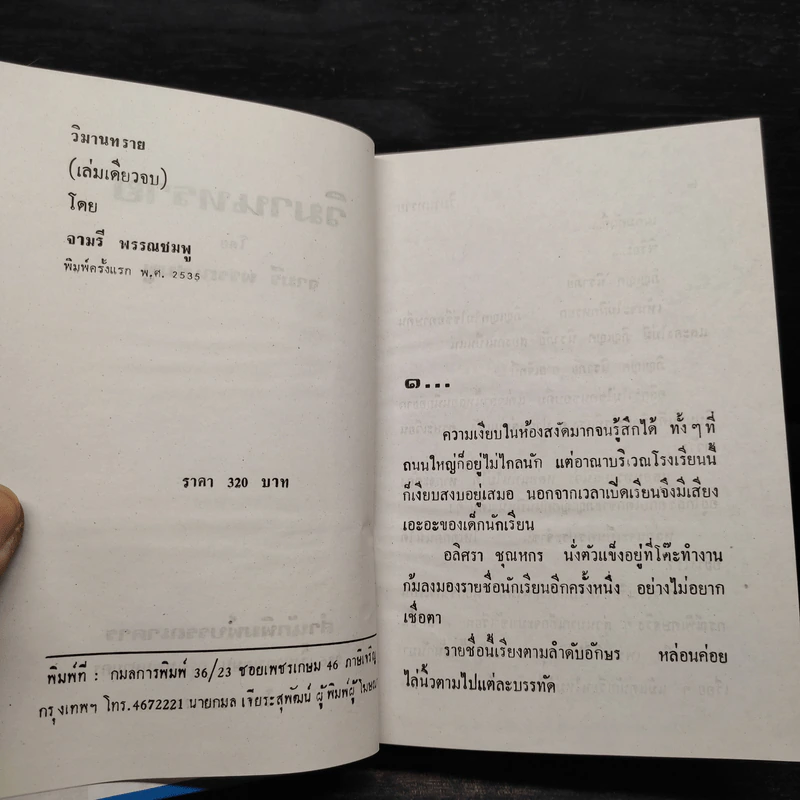 วิมานทราย
(เล่มเดียวจบ)
โดย
จามรี พรรณชมพู
พิมพ์ครั้งแรก พ.ศ. 2535
ราคา 320 บาท
พิมพ์ที่ : กมลการพิมพ์ 36/23 ซอยเพชรเกษม 46 ภาษีเจริญ
กรุงเทพฯ โทร.4672221 นายกมล เจียระสุพัฒน์ ผู้พิมพ์ผู้โฆษณา
๑...
ความเงียบในห้องสงัดมากจนรู้สึกได้ ทั้ง ๆ ที่
ถนนใหญ่ก็อยู่ไม่ไกลนัก แต่อาณาบริเวณโรงเรียนนี้
ก็เงียบสงบอยู่เสมอ นอกจากเวลาเปิดเรียนจึงมีเสียง
เอะอะของเด็กนักเรียน
อลิศรา ชุณหกร นั่งตัวแข็งอยู่ที่โต๊ะทำงาน
ก้มลงมองรายชื่อนักเรียนอีกครั้งหนึ่ง อย่างไม่อยาก
เชื่อตา
รายชื่อนี้เรียงตามลำดับอักษร หล่อนค่อย
ไล่นิ้วตามไปแต่ละบรรทัด